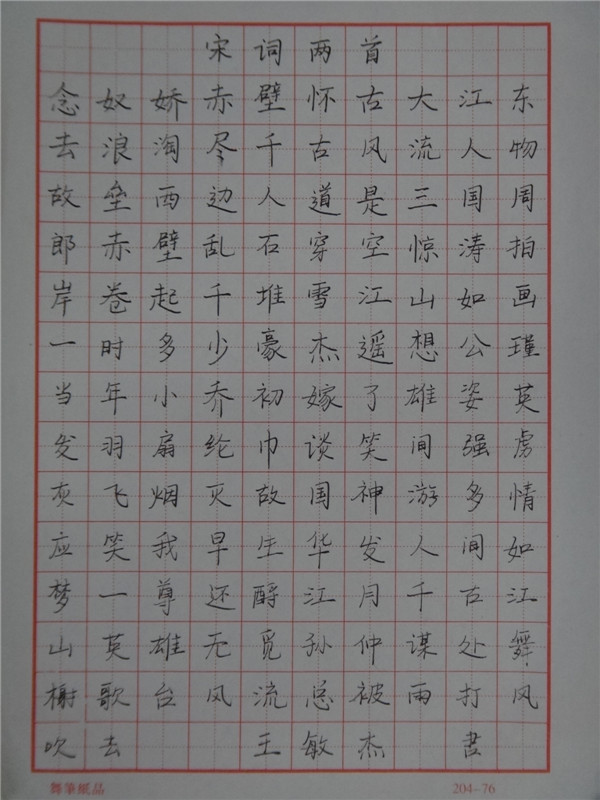 宋词两首
念奴娇赤壁怀古大江东
去浪淘尽千古风流人物
故垒西边人道是三国周
郎赤壁乱石穿空惊涛拍
岸卷起千堆雪江山如画
一时多少豪杰遥想公瑾
当年小乔初嫁了雄姿英
发羽扇纶巾谈笑间强虏
灰飞烟灭故国神游多情
应笑我早生华发人间如
梦一尊还酹江月千古江
山英雄无觅孙仲谋处舞
榭歌台风流总被雨打风
吹去 王敏杰 书
舞笔纸品 204-76